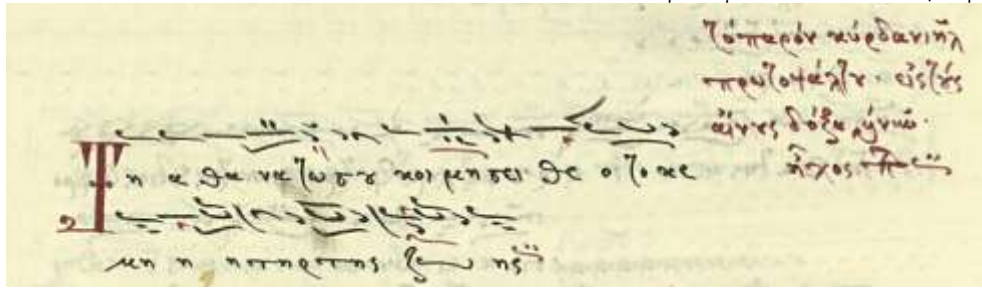 τὸ παρὸν κὺρ δανιὴλ
πρωτοψάλτου · εἰς τοὺς
αἴνους δόξα καὶ νῦν ·
ἦχος
Τη α θα να τω σου κοι μη σει θε ο το κε
μη η η τηρ της ζω ης